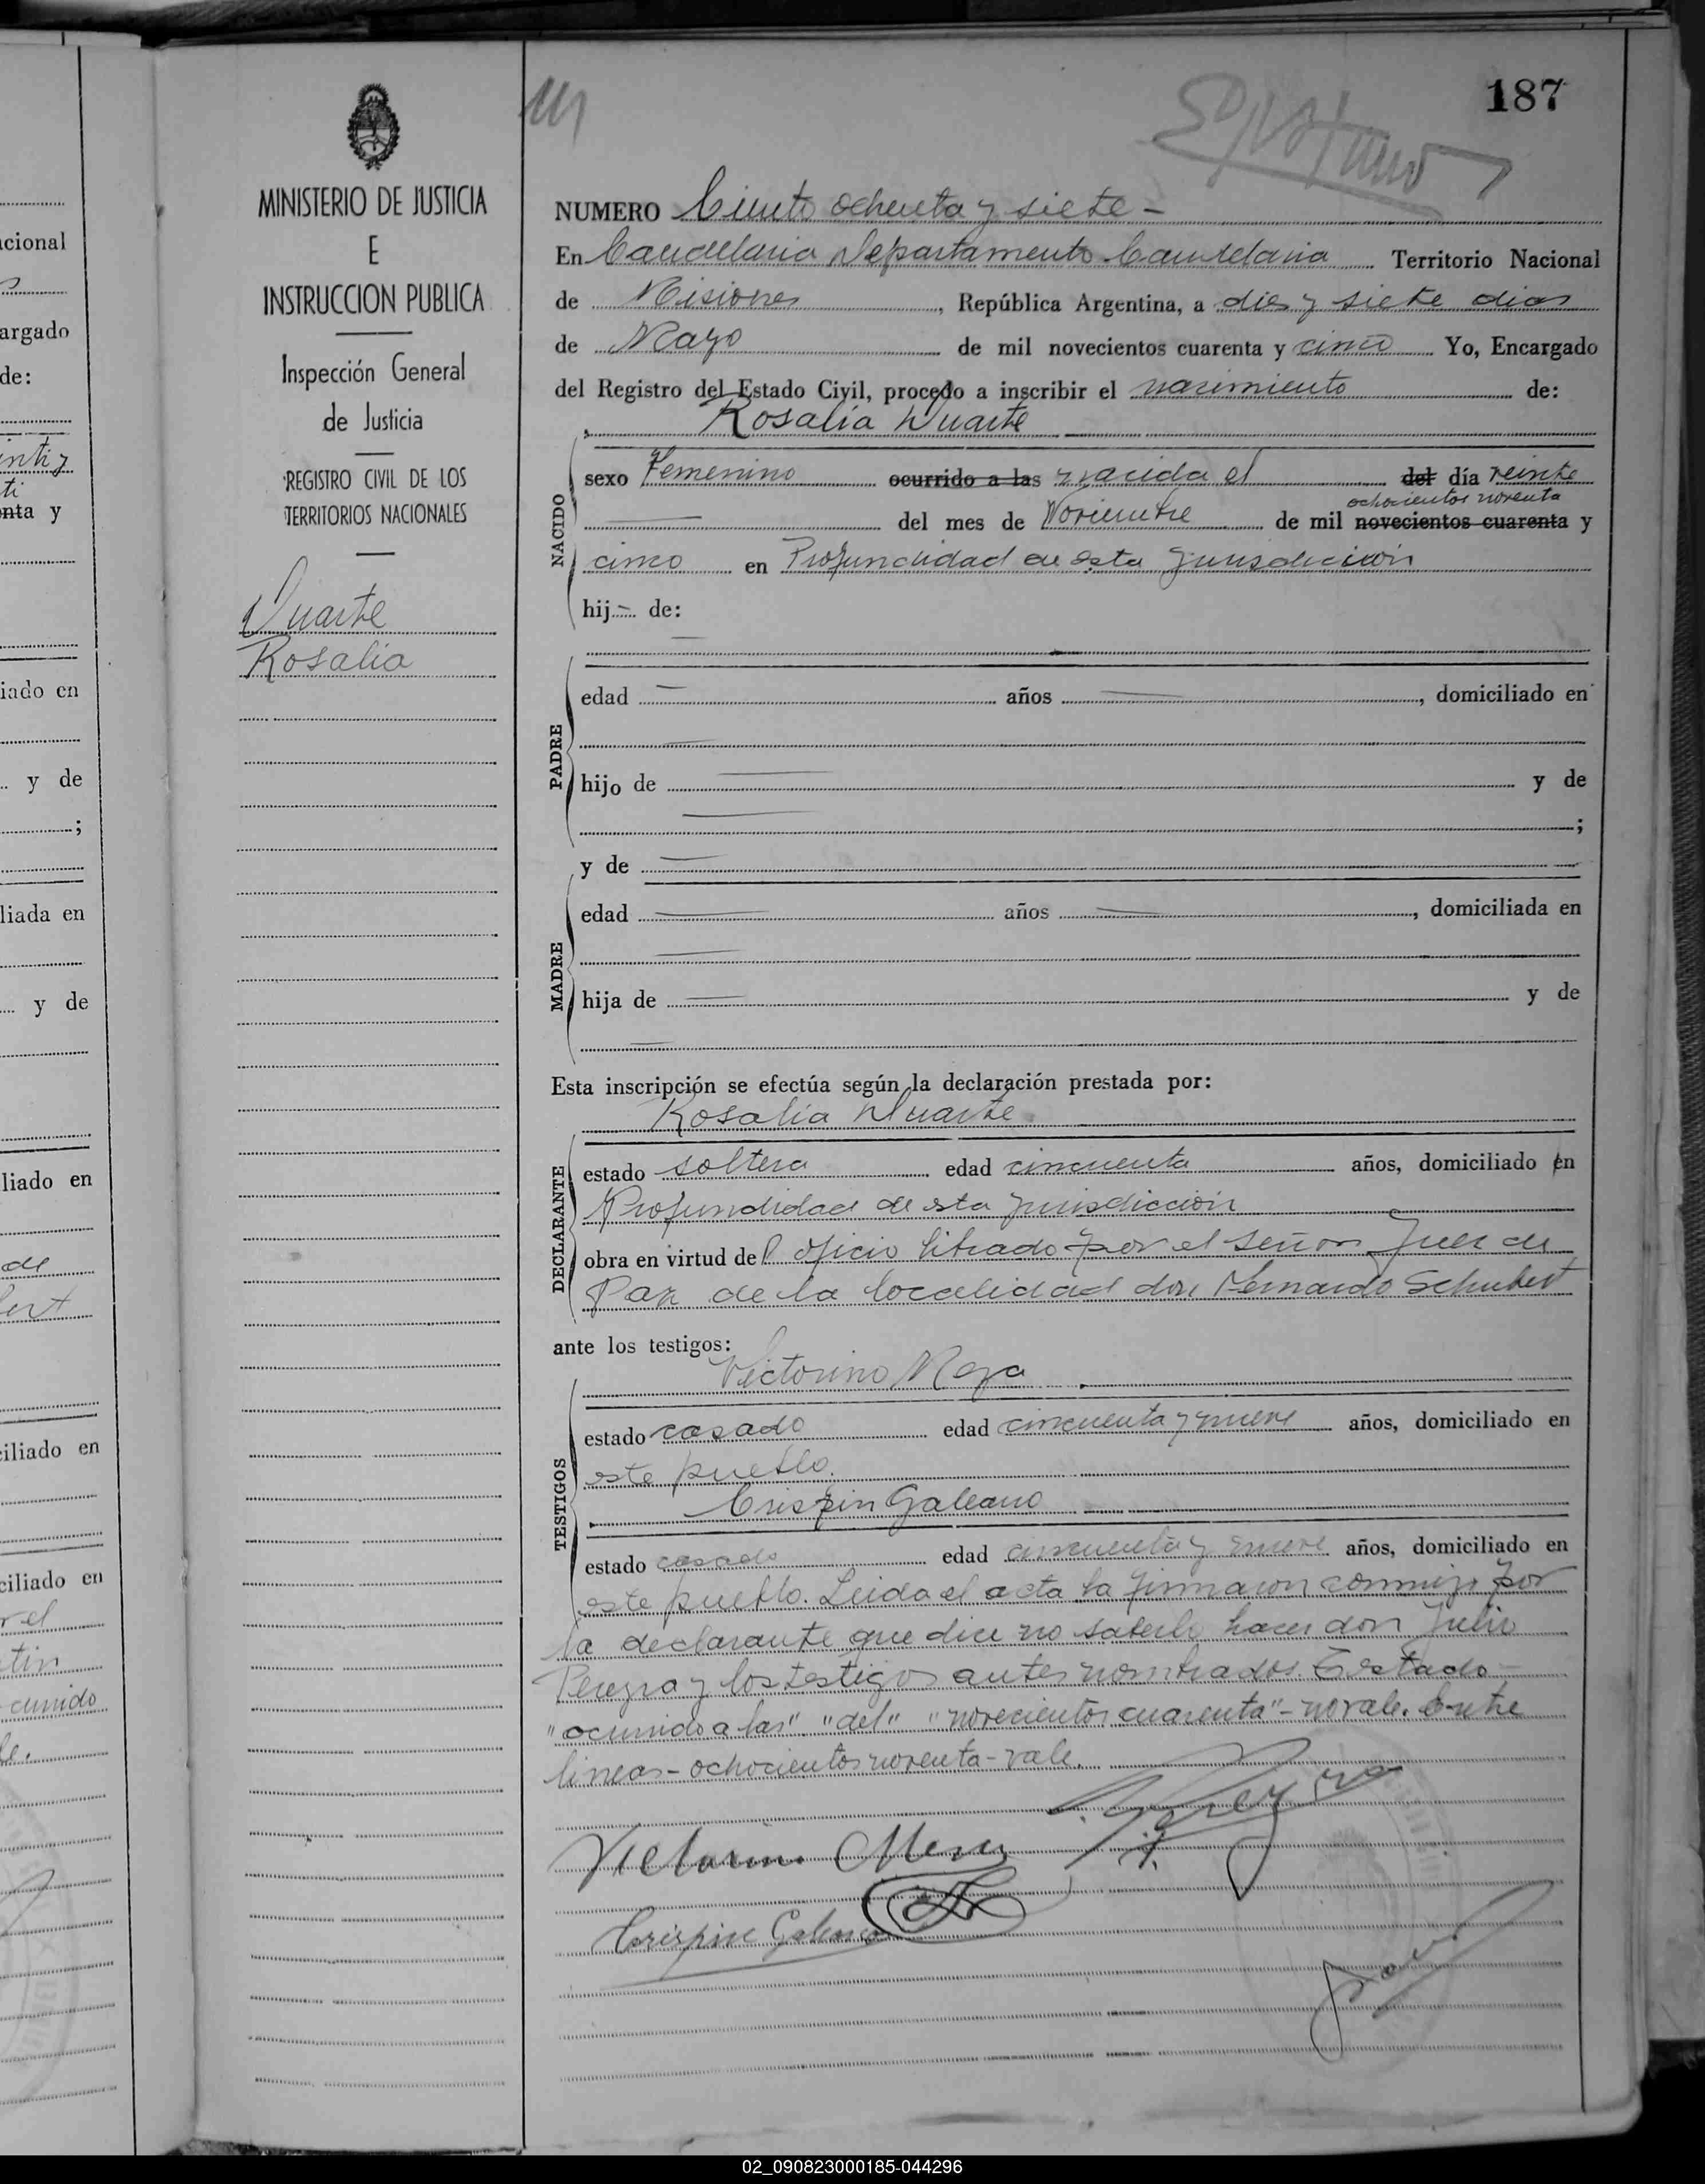 187
MINISTERIO DE JUSTICIA
E
INSTRUCCION PUBLICA
Inspección General
de Justicia
REGISTRO CIVIL DE LOS
TERRITORIOS NACIONALES
Duarte
Rosalia
NUMERO Ciento ochenta y siete -
En Candelaria Departamento Candelaria Territorio Nacional
de Misiones, República Argentina, a dies y siete dias
de Mayo de mil novecientos cuarenta y cinco Yo, Encargado
del Registro del Estado Civil, procedo a inscribir el nacimiento de:
Rosalia Duarte
NACIDO
sexo Femenino ocurrido a las nacida el del día veinte
ochocientos noventa
del mes de Noviembre de mil novecientos cuarenta y
cinco en Profundidad de esta jurisdiccion
hij— de:
PADRE
edad — años —, domiciliado en
—
hijo de — y de
— ;
y de —
MADRE
edad — años —, domiciliada en
—
hija de — y de
—
Esta inscripción se efectúa según la declaración prestada por:
Rosalia Duarte
DECLARANTE
estado soltera edad cincuenta años, domiciliado en
Profundidad de esta jurisdiccion
obra en virtud del oficio librado por el señor Juez de
Paz de la localidad don Fernando Schubert
ante los testigos:
Victorino Meza
TESTIGOS
estado casado edad cincuenta y nueve años, domiciliado en
este pueblo.
Crispin Galeano
estado casado edad cincuenta y nueve años, domiciliado en
este pueblo. Leida el acta la firmaron conmigo por
la declarante que dice no saberlo hacer don Julio
Pereyra y los testigos antes nombrados. Testado
"ocurrido a las" "del" "novecientos cuarenta" - no vale. Entre
lineas - ochocientos noventa - vale.
Victorino Meza
Crispin Galeano
02_090823000185-044296